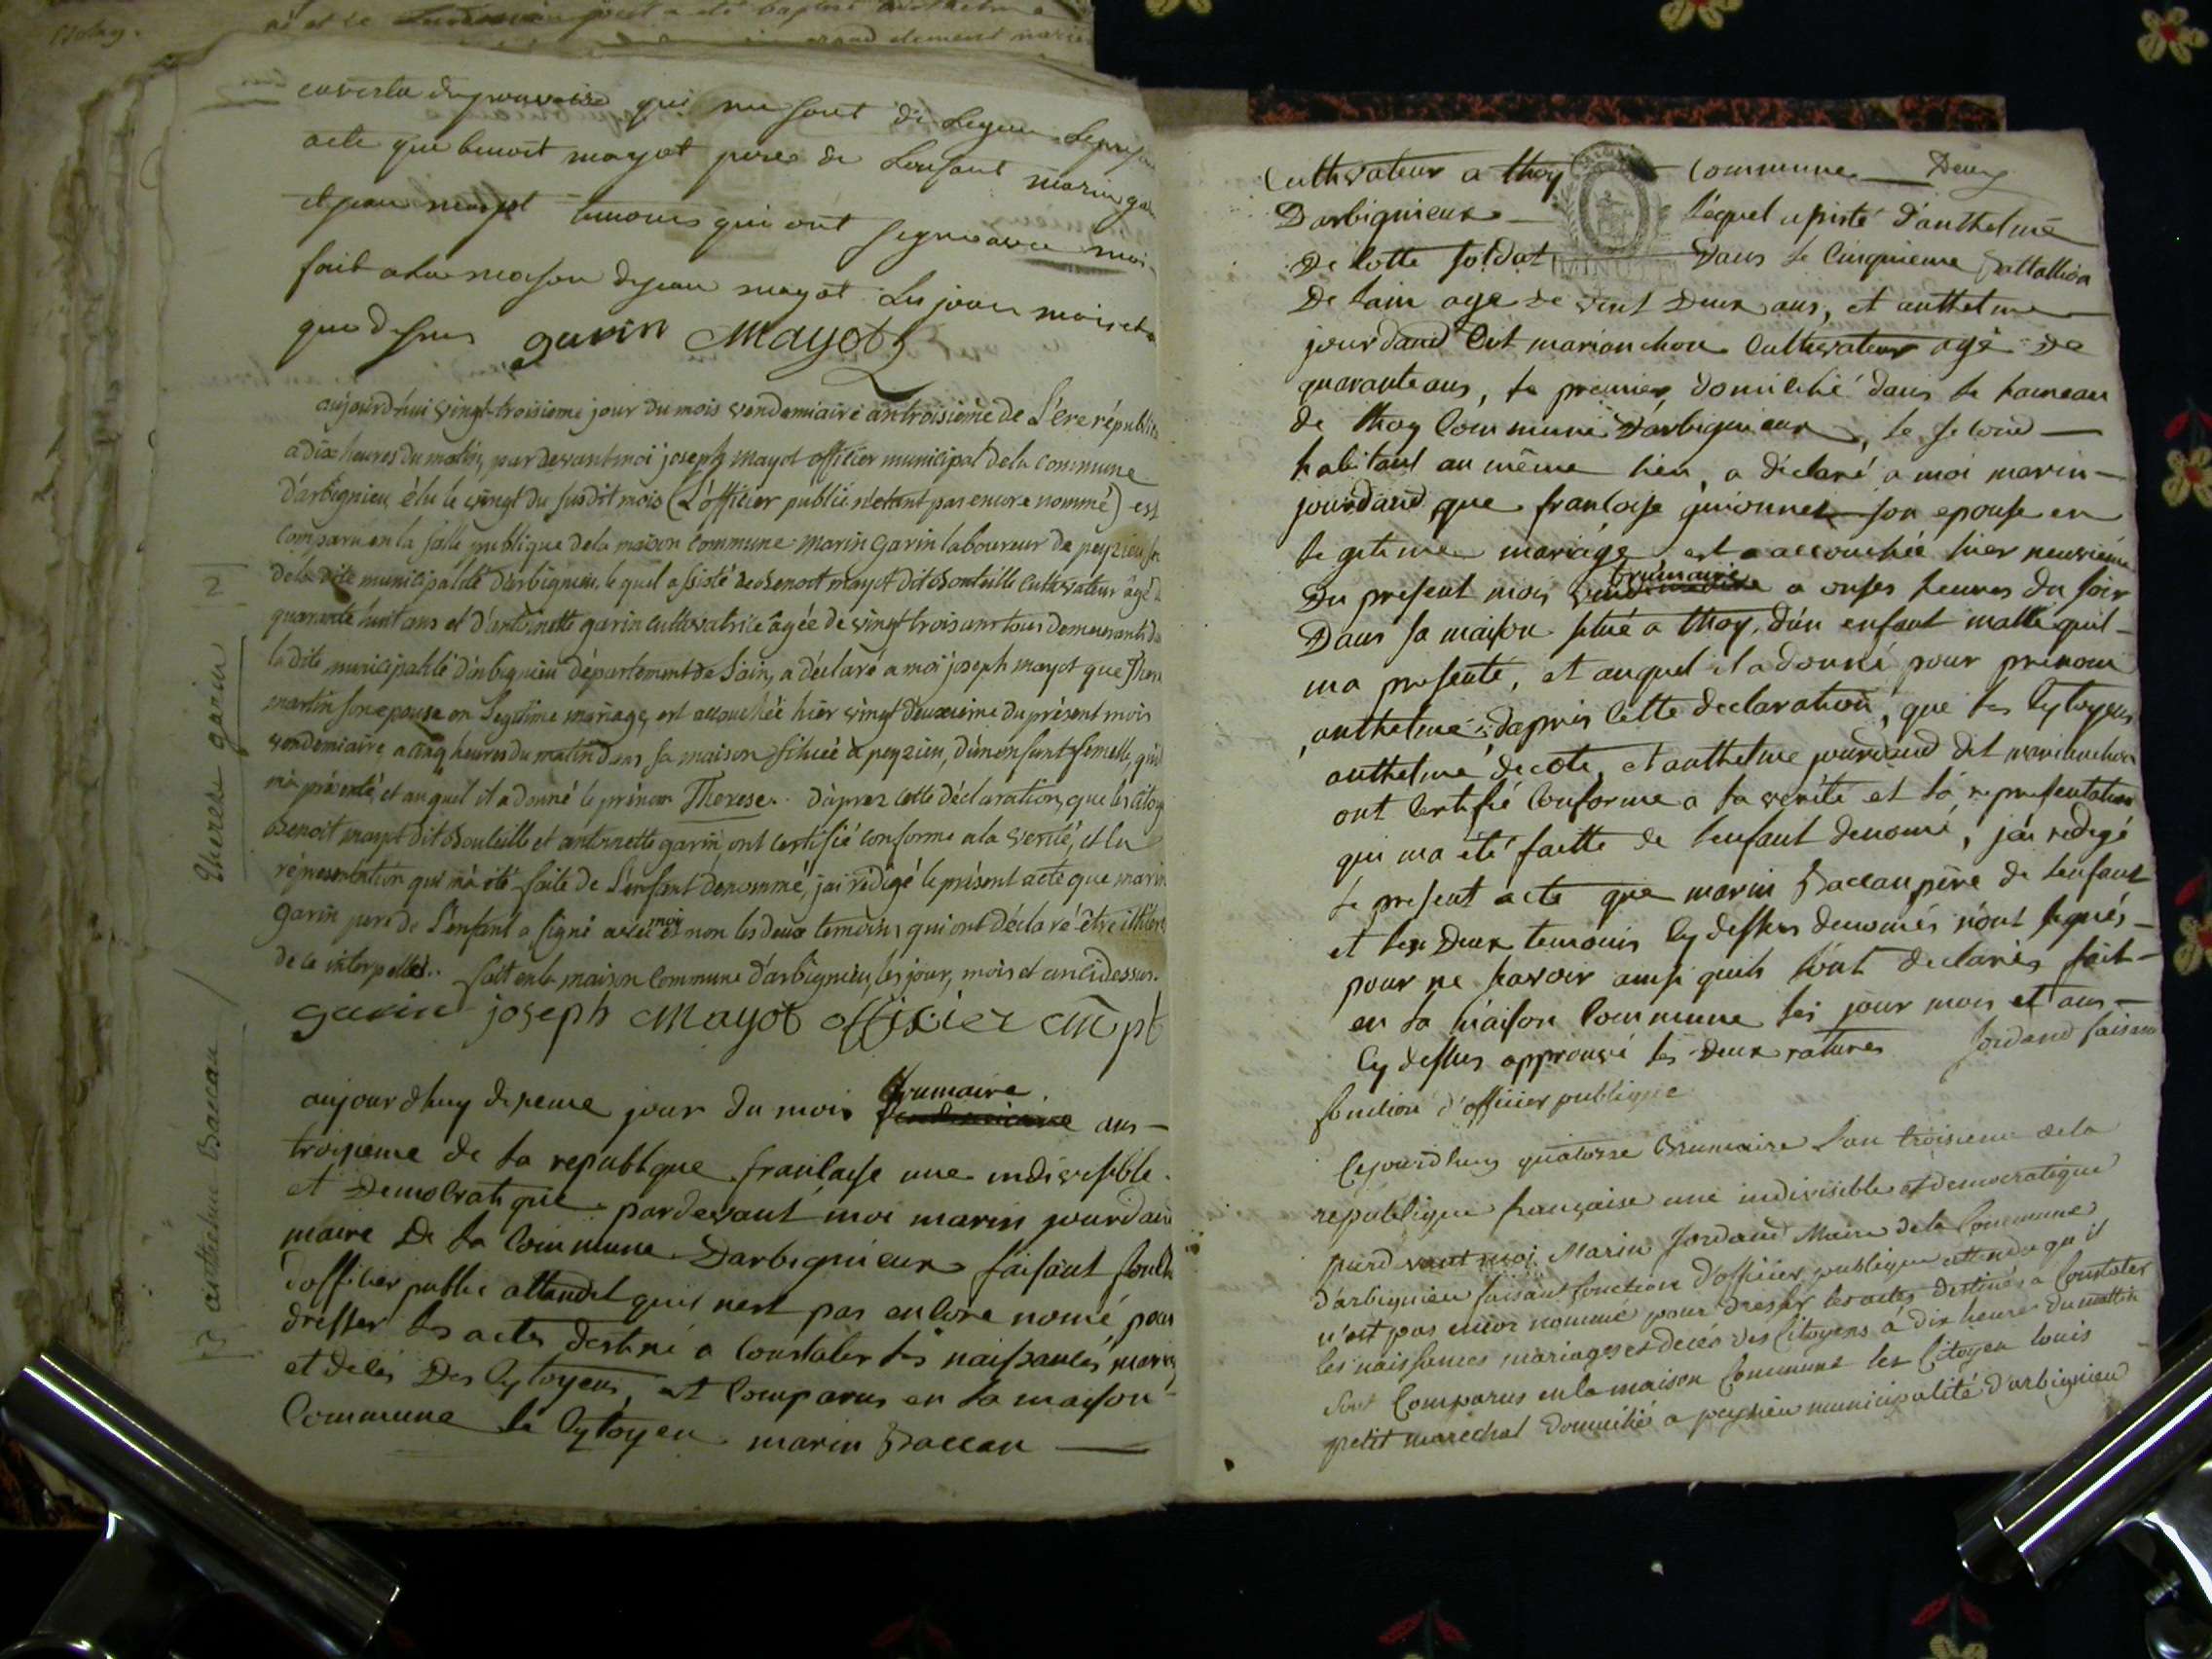 en vertu du pouvoirs qui me sont
acte que benoit mayot pere de Lenfant marin
et jean mayot temoins qui ont signe avec moi
fait a la maison de jean mayot Les jour mois et
que dessus garin Mayot
aujourd'hui vingt-troisieme jour du mois vendemiaire an troisième de L'ere républi
a dix heures du matin, par devant moi joseph mayot officier municipal de la commune
d'arbignieu élu le vingt du susdit mois (L'officier public n'etant pas encore nommé) est
comparu en la salle publique de la maison commune marin garin laboureur de peyzieu
de la dite municipalité d'arbignieu, le quel assisté de Benoit mayot dit Bouteille cultivateur âgé
2
quarante huit ans et d'antoinette garin cultivatrice âgée de vingt trois ans tous demeurants da
la dite municipalité d'arbignieu département de L'ain, a déclaré a moi joseph mayot que Ther
Therese garin
martin son epouse en Legitime mariage, est accouchée hier vingt deuxieme du présent mois
vendemiaire a cinq heures du matin dans sa maison située à peyzieu, d'un enfant femelle, qu'il
m'a présenté, et auquel il a donné le prénom Therese. D'après cette déclaration, que les citoy
Benoit mayot dit Bouteille et antoinette garin, ont certifié conforme a la verité, et la
réprésentation qui m'a été faite de L'enfant denommé, j'ai redigé le présent acte que marin
garin pere de L'enfant a signé avec moi et non les deux temoins qui ont déclaré être illitéré
de ce interpellés.. fait en la maison commune d'arbignieu, les jour, mois et an ci dessus.
garin joseph Mayot officier
anthelme Baccau
aujourdhuy dixieme jour du mois brumaire ans
troisieme de la republique francaise une indivisible
et Democratique pardevant moi marin jourdaud
maire De la Commune Darbignieux faisant fonctio
dofficier public attendu quil nest pas encore nomé, pour
dresser les actes destiné a Constater les naissances, maria
et déces Des Cytoyens, est Comparus en la maison
Commune le Cytoyen marin Baccau
Cultivateur a thoy Commune Deux
Darbignieux Léquel assisté d'anthelme
MINUTE
De Cotte soldat Dans le Cinquieme Battallion
De Lain age de vint Deux ans, et anthelme
jourdaud Dit marianchon Cultivateur agé de
quarante ans, le premier domicilié dans le hameau
de thoy Commune Darbignieux, le second
habitant au même lieu, a déclaré a moi marin
jourdaud que francoise guionnet son epouse en
legitime mariage est accouchée hier neuvieme
Du present mois brumaire a onses heures du soir
Dans sa maison situé a thoy, d'un enfant malle quil
ma presenté, et auquel il a donné pour prenom
anthelme, dapres Cette declaration, que les Cytoyens
anthelme decote, et anthelme jourdaud dit marianchon
ont Certifié Conforme a la verité et la representation
qui ma été faitte de lenfant denomé, jai redigé
le present acte que marin Baccau père de lenfant
et les Deux temouins Cy dessus denomés n'ont signés
pour ne savoir ainsi quils l'ont declarés fait
en la maison Commune les jour mois et ans
Cy dessus approuvé les Deux ratures Jordand faisan
fonction d'officier publique
Cejourdhuy quatorze Brumaire L'an troisieme de la
république française une indivisible et democratique
pardevant moi Marin Jordand Maire de la Commune
d'arbignieu faisant fonction d'officier publique attendu qu'il
n'est pas encor nommé pour dresser les actes destinés a Constater
les naissances mariages et decés des Citoyens à dix heures du mattin
sont Comparus en la maison Commune les Citoyen Louis
petit marechal domicilié a peyzieu municipalité d'arbignieu